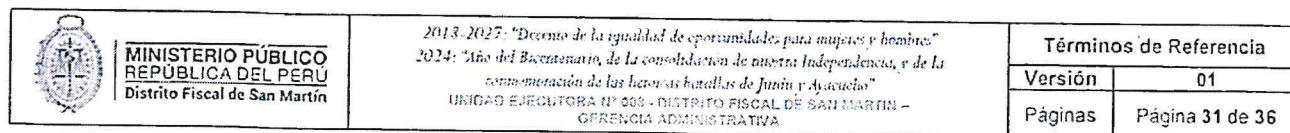 MINISTERIO PÚBLICO
REPÚBLICA DEL PERÚ
Distrito Fiscal de San Martín
2018-2027: "Decenio de la igualdad de oportunidades para mujeres y hombres"
2024: "Año del Bicentenario, de la consolidación de nuestra Independencia, y de la
conmemoración de las heroicas batallas de Junín y Ayacucho"
UNIDAD EJECUTORA N° 003 - DISTRITO FISCAL DE SAN MARTIN –
GERENCIA ADMINISTRATIVA
Términos de Referencia
Versión 01
Páginas Página 31 de 36